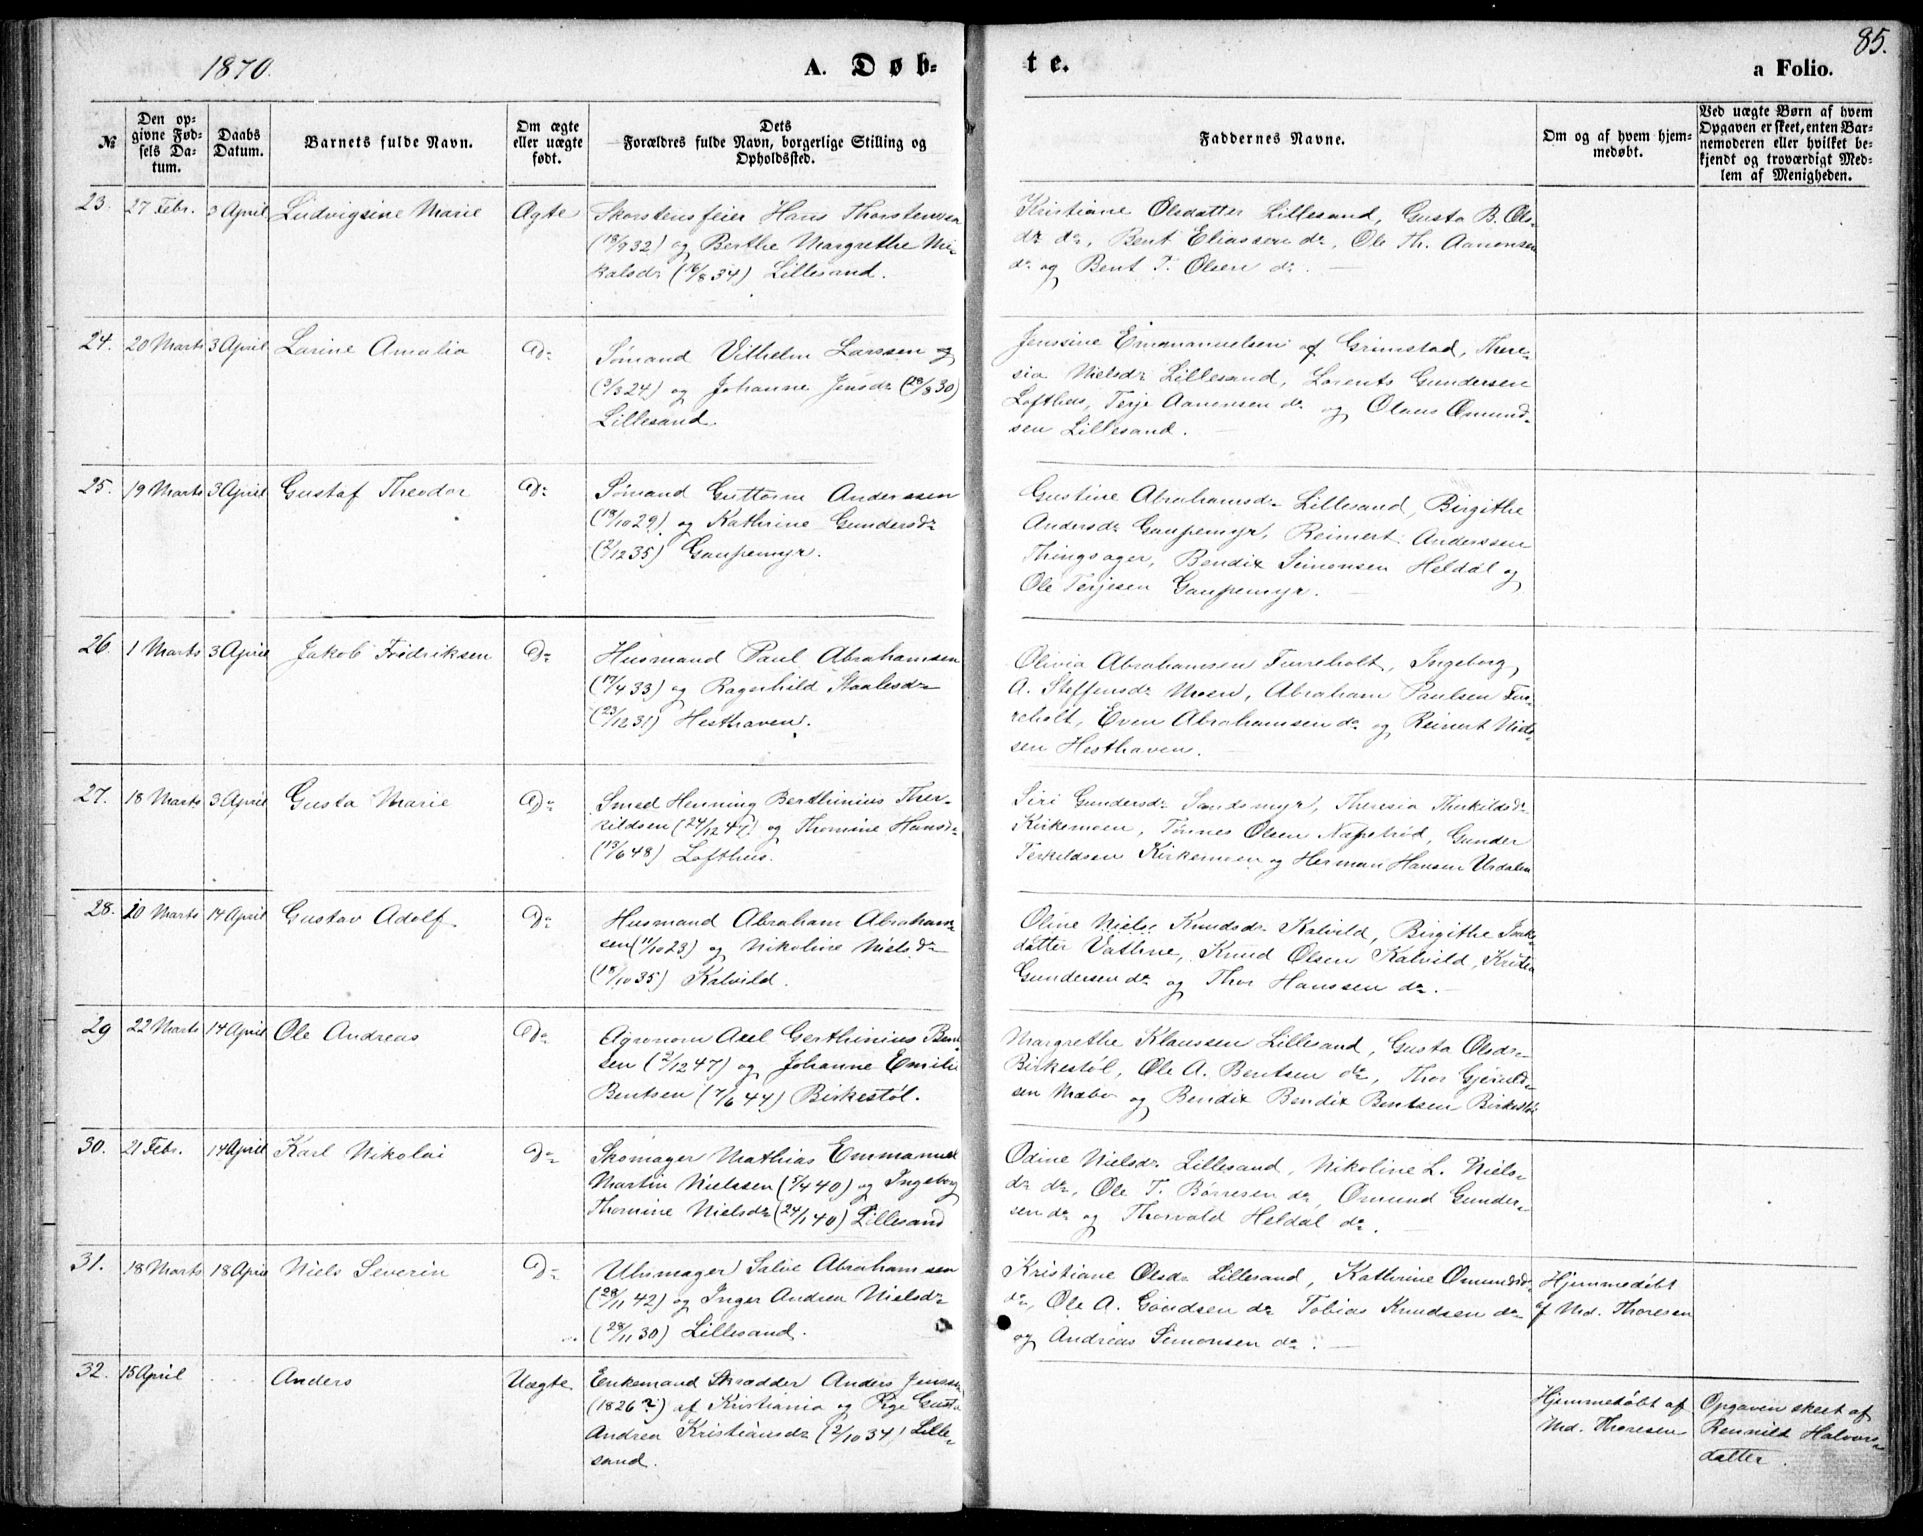 1870.
A. Døb-
te.
85.
a Folio.
№
Den op-
givne Fød-
sels Da-
tum.
Daabs
Datum.
Barnets fulde Navn.
Om ægte
eller uægte
født.
Dets
Forældres fulde Navn, borgerlige Stilling og
Opholdssted.
Faddernes Navne.
Om og af hvem hjem-
medøbt.
Ved uægte Børn af hvem
Opgaven er skeet, enten Bar-
nemoderen eller hvilket be-
kjendt og troværdigt Med-
lem af Menigheden.
23. 27 Febr. 3 April Ludvigsine Marie Ægte
Skorstensfeier Hans Thorstensen
(18/9 32) og Berthe Margrethe Mi-
kalsdr (16/8 34) Lillesand.
Kristiane Olsdatter Lillesand, Gusta B. Ols-
dr do, Bent Eliassen do, Ole Th. Aanensen
do og Bent T. Olsen do. —
24. 20 Marts 3 April Larine Amalia Do
Sømand Vilhelm Larssen og
(9/3 24) og Johanne Jensdr (28/8 30)
Lillesand.
Jensine Emanuelsen af Grimstad, There-
sia Nielsdr Lillesand, Lorents Gundersen
Lofthus, Terje Aanensen do og Olaus Omund-
sen Lillesand. —
25. 19 Marts 3 April Gustaf Theodor Do
Sømand Guttorm Anderssen
(18/10 29) og Kathrine Gundersdr
(2/12 35) Gaupemyr.
Gustine Abrahamsdr Lillesand, Birgithe
Andersdr Gaupemyr, Reinert Anderssen
Thingsager, Bendix Simonsen Heldal og
Ole Terjesen Gaupemyr. —
26. 1 Marts 3 April Jakob Fredriksen Do
Husmand Paul Abrahamsen
(17/4 33) og Ragenhild Staalesdr
(23/12 31) Hesthaven.
Olivia Abrahamsen Furreholt, Ingeborg
A. Steffensdr Moen, Abraham Paulsen Fur-
reholt, Even Abrahamsen do og Reinert Niel-
sen Hesthaven. —
27. 18 Marts 3 April Gusta Marie Do
Smed Henning Berthinius Ther-
kildsen (24/12 47) og Thomine Hansdr
(13/6 48) Lofthus.
Siri Gundersdr Sandsmyr, Theresia Therkildsdr
Kirkemoen, Tønnes Olsen Næperød, Gunder
Terkildsen Kirkemoen og Herman Hansen Urdalen
28. 20 Marts 14 April Gustav Adolf. Do
Husmand Abraham Abraham-
sen (11/10 23) og Nikoline Nielsdr
(18/10 35) Kalvild.
Oline Niels Knudsdr Kalvild, Birgithe
datter Vathne, Knud Olsen Kalvild,
Gundersen do og Thor Hanssen do. —
29 22 Marts 14 April Ole Andreas Do
Agronom Axel Gerthinius Bent-
sen (2/12 47) og Johanne Emilie
Bentsen (7/6 44) Birkestøl.
Margrethe Klaussen Lillesand, Gusta Olsdr
Birkestøl, Ole A. Bentsen do, Thor Gjeruld-
sen Mæbø og Bendix Bendix Bentsen Birkestøl
30. 21 Febr. 14 April Karl Nikolai Do
Skomager Mathias Emmanuel
Martin Nielssen (5/4 40) og Ingeborg
Thomine Nielsdr (24/1 40) Lillesand
Odine Nielsdr Lillesand, Nikoline L. Niels-
dr do, Ole T. Børresen do, Omund Gunder-
sen do og Thorvald Heldal do. —
31. 18 Marts 18 April Niels Severin Do
Uhrmager Salve Abrahamsen
(28/11 42) og Inger Andrea Nielsdr
(28/11 30) Lillesand.
Kristiane Olsdr Lillesand, Kathrine Omundsdr
do, Ole A. Gundsen do Tobias Knudsen do
og Andreas Simonsen do. —
Hjemmedøbt
af Md. Thoresen
32. 15 April Anders Uægte
Enkemand Skrædder Anders Jenssen
(1826?) af Kristiania og Pige Gusta
Andrea Kristiansdr (2/10 34) Lille-
sand.
Hjemmedøbt af
Md. Thoresen
Opgaven skeet af
Rennild Halvors-
datter.